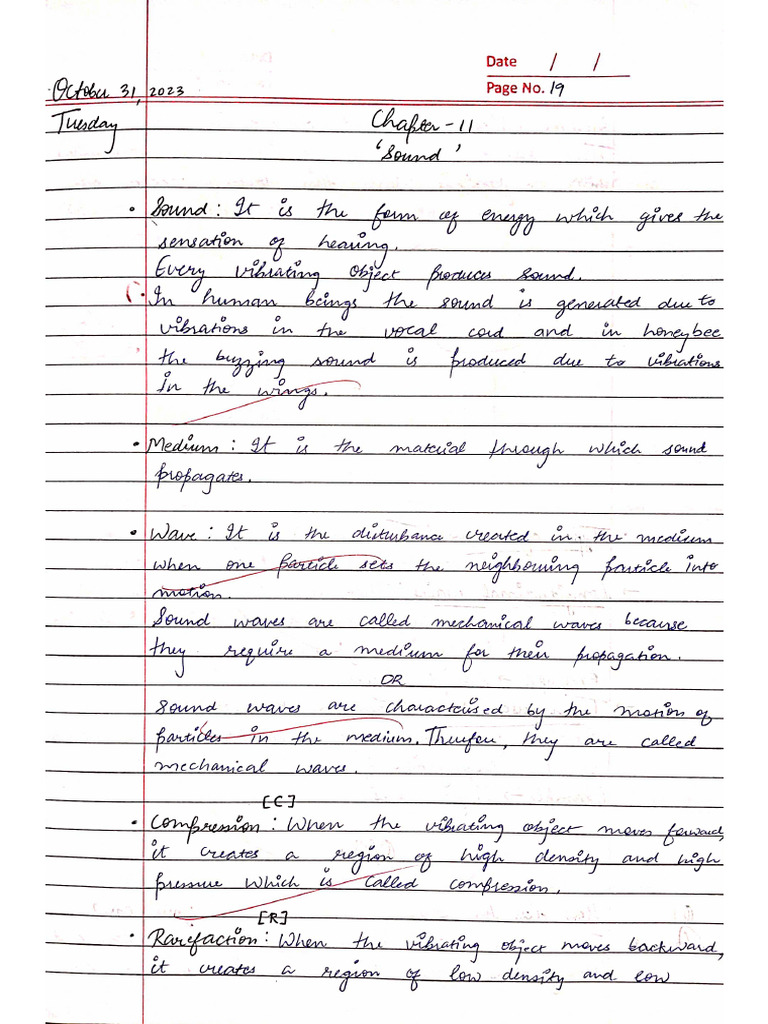 Date / /
October 31, 2023
Page No. 19
Tuesday
Chapter-11
'Sound'
• Sound : It is the form of energy which gives the
sensation of hearing.
Every vibrating object produces sound.
• In human beings the sound is generated due to
vibrations in the vocal cord and in honeybee
the buzzing sound is produced due to vibrations
in the wings.
• Medium : It is the material through which sound
propagates.
• Wave : It is the disturbance created in the medium
when one particle sets the neighbouring particle into
motion.
Sound waves are called mechanical waves because
they require a medium for their propagation.
OR
Sound waves are characterised by the motion of
particles in the medium. Therefore, they are called
mechanical waves.
[C]
• Compression : When the vibrating object moves forward,
it creates a region of high density and high
pressure which is called compression.
[R]
• Rarefaction : When the vibrating object moves backward,
it creates a region of low density and low